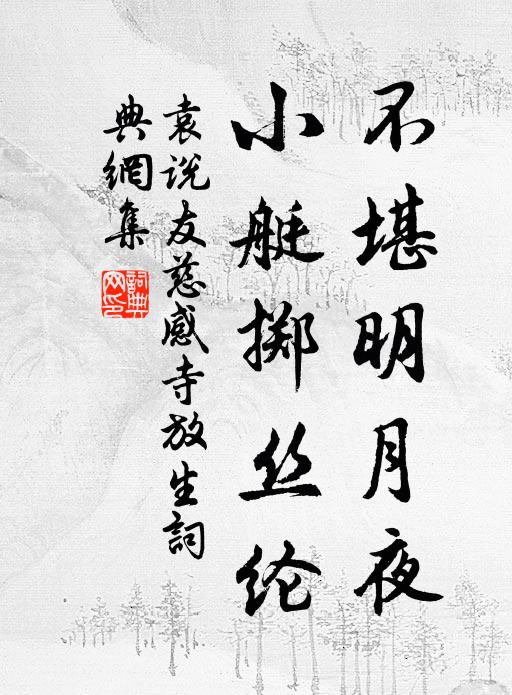 不堪明月夜
小艇掷丝纶
袁说友慈感寺放生詞
典網集
詞典網印